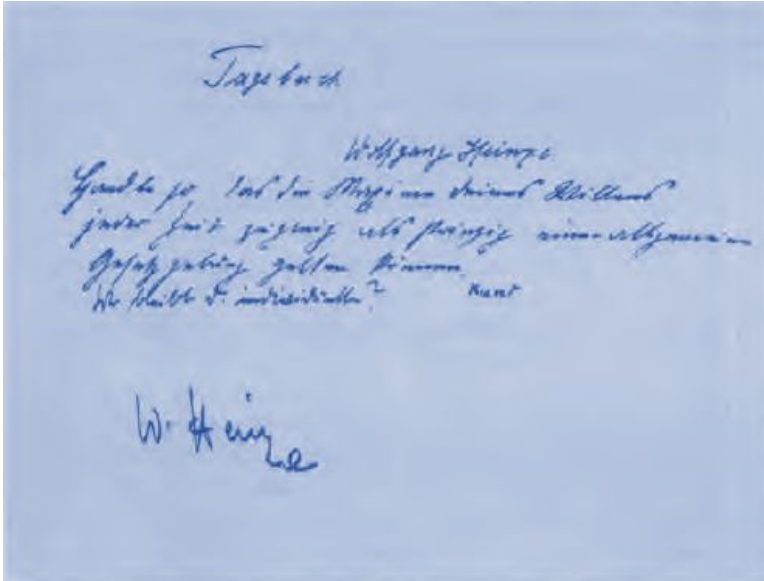 Tagebuch
Wolfgang Heinze
Handle so, das die Maximen deines Willens
jeder Zeit zugleich als Prinzip einer allgemeinen
Gesetzgebung gelten können
Kant
Wo bleibt d. individuelle?
W. Heinze